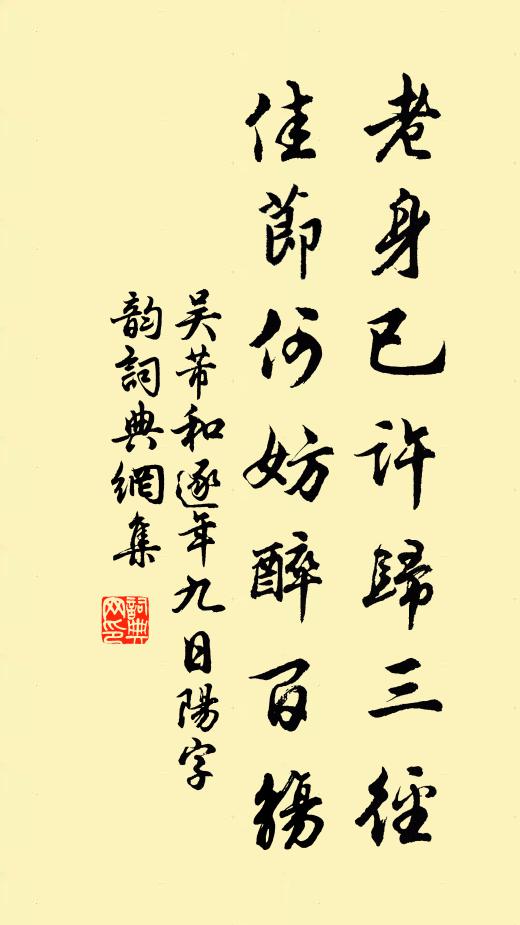 老身已许歸三徑
佳節何妨醉百觴
吴芾和逐年九日陽字
韵詞典網集
詞典
网印